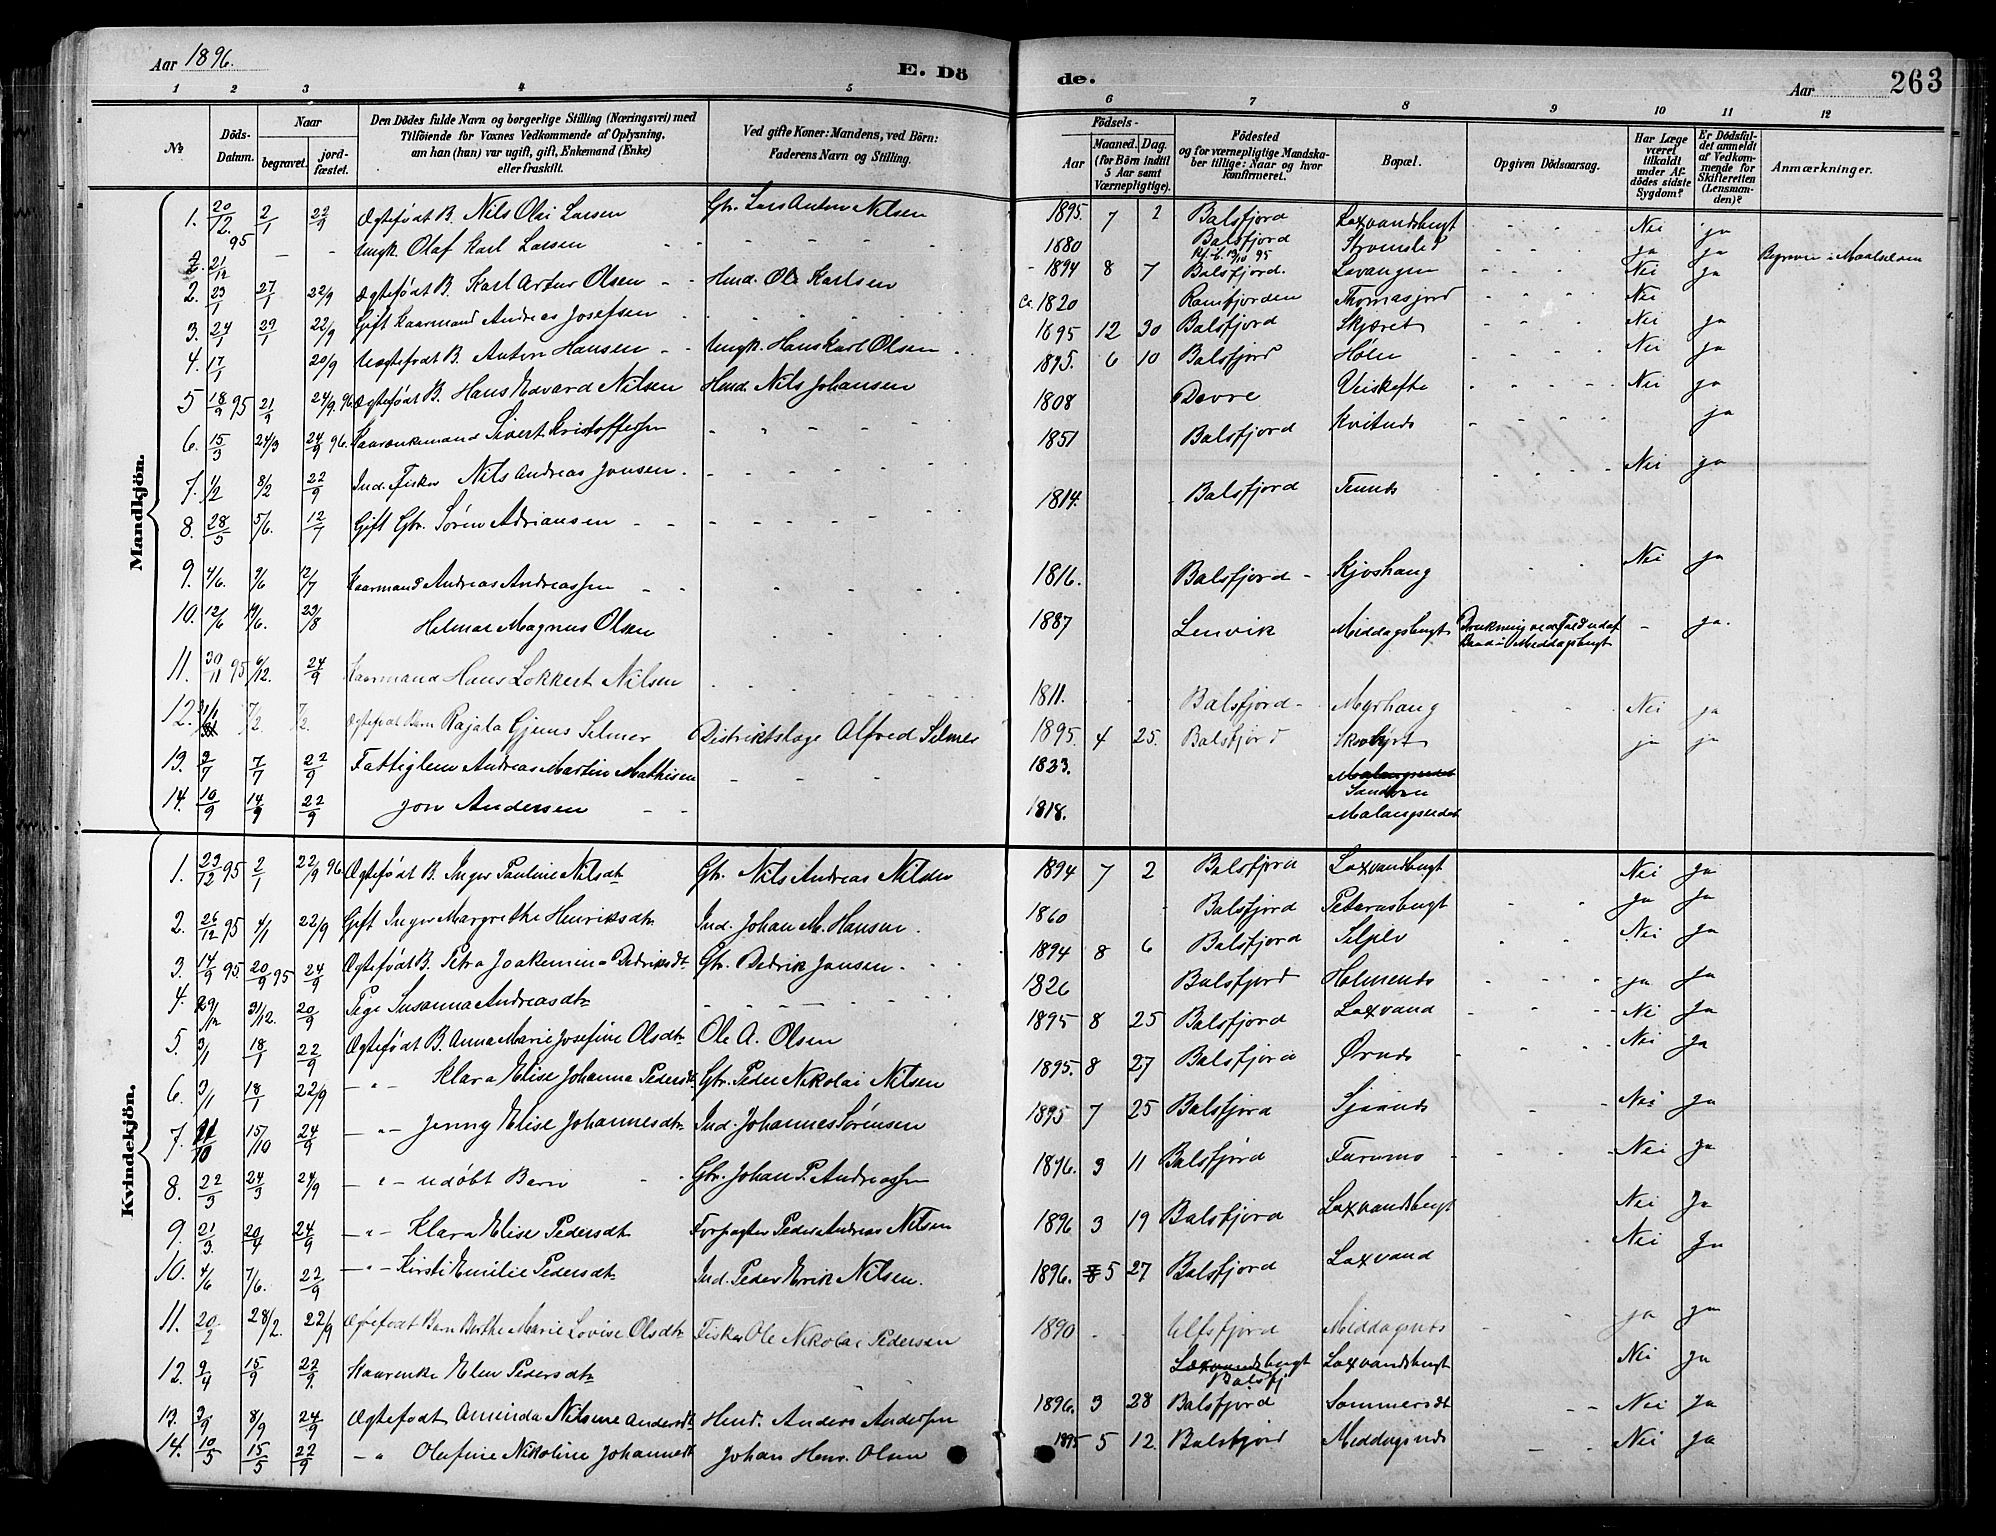 Aar 1896. E. Dö de. Aar 263
1 2 3 4 5 6 7 8 9 10 11 12
№
Döds-Datum.
Naar
begravet.
jord-fæstet.
Den Dödes fulde Navn og borgerlige Stilling (Næringsvei) med
Tilföiende for Voxnes Vedkommende af Oplysning,
om han (hun) var ugift, gift, Enkemand (Enke)
eller fraskilt.
Ved gifte Koner: Mandens, ved Börn:
Faderens Navn og Stilling.
Födsels-
Aar
Maaned. Dag.
(for Börn indtil
5 Aar samt
Værnepligtige).
Födested
og for værnepligtige Mandska-
ber tillige: Naar og hvor
konfirmeret.
Bopæl.
Opgiven Dödsaarsag.
Har Læge
været
tilkaldt
under Af-
dödes sidste
Sygdom?
Er Dödsfal-
det anmeldt
af Vedkom-
mende for
Skifteretten
(Lensman-
den)?
Anmærkninger.
Mandkjön.
1. 20/12 95 2/1 22/9 Ægtefødt B. Nils Olai Larsen Gbr. Lars Anton Nilsen 1895. 7 2 Balsfjord Laxvandsbugt Nei ja
2. 21/12 - - Ungk. Olaf Karl Larsen 1880 Balsfjord Strømsli ja ja Begraven i Maalselven
2. 23/1 27/1 22/9 Ægtefødt B. Karl Artur Olsen Husd. Ole Karlsen 1894 8 7 Balsfjord. Lavangen Nei ja
3. 24/1 29/1 22/9 Gift Kaarmand Andreas Josefsen Ca. 1820 Ramfjorden Thomasjord Nei
4. 17/1 20/9 Uægtefødt B. Anton Hansen Ungk. Hans Karl Olsen 1895 12 30 Balsfjord Skjæret Nei ja
5 18/9 95 21/9 24/9 96 Ægtefødt B. Hans Edvard Nilsen Husd. Nils Johansen 1895. 6 10 Balsfjord Hølen Nei ja
6. 15/3 24/3 24/9 96. Kaarenkemand Sivert Kristoffersen 1808 Dovre Nei ja
7. 1/2 8/2 22/9 Ind. Fisker Nils Andreas Jonsen. 1851 Balsfjord Kvitnes ja
8. 28/5 5/6. 12/7 Gift Gbr. Søren Adriansen 1814. Balsfjord Tennes Nei ja
9. 4/6. 9/6 12/7 Kaarmand Andreas Andreassen 1816. Balsfjord Kjoshaug Nei ja
10. 12/6 19/6. 23/8 Hilmar Magnus Olsen 1887 Lenvik Middagsbugt Drukning ved Fald ud af Baad i Middagsbugt - ja.
11. 30/11 95 6/12. 24/9 Kaarmand Hans Lokkert Nilsen 1811. Balsfjord Myrhaug Nei ja
12. 7/2 7/2 Ægtefødt Barn Rajala Gjems Selmer Distriktslæge Alfred Selmer 1895. 4 25. Balsfjord ja ja
13. 2/7 7/7 22/9 Fattiglem Andreas Martin Mathisen 1823. Malangseidet Sandøren
14. 10/9 14/9 22/9 Jon Andersen 1818. Malangseidet
Kvindekjön.
1. 23/12 95 2/1 22/9 96 Ægtefødt B. Inger Pauline Nilsdt Gbr. Nils Andreas Nilsen 1894 7 2 Balsfjord Laxvandbugt Nei ja
2. 26/12 95 4/1 22/9 Gift Inger Margrethe Henriksdtr Ind. Johan M. Hansen. 1860 Balsfjord Petersbugt ja ja
3. 14/9 95 20/9 95 24/9 Ægtefødt B. Petra Joakemine Didriksdt Gbr. Didrik Jensen. 1894 8 6 Balsfjord Selselv Nei ja
4. 29/12 31/12. 20/9 Pige Susanna Andreasdtr 1826 Balsfjord Holmenes ja ja
5. 3/1 18/1 22/9 Ægtefødt B. Anna Marie Josefine Olsdtr Ole A. Olsen 1895 8 25 Balsfjord Laxvand Nei ja
6. 3/1 18/1 22/9 Klara Elise Johanna Pedersdt Gbr. Peder Nikolai Nilsen 1895. 8 27 Balsfjord Ørnes Nei ja
7. 11/10 15/10 24/9 Jenny Elise Johannesdtr Ind. Johannes Sørensen 1895 7 25 Balsfjord Sjaanes Nei ja
8. 22/3 24/3 24/9 udøbt Barn Gbr. Johan P. Andreassen 1896. 3 11 Balsfjord Furumo Nei ja
9. 21/3. 20/4 24/9 Klara Elise Pedersdt. Forpagter Peder Andreas Nilsen 1896 3 19 Balsfjord Laxvandsbugt Nei Ja
10. 4/6 7/6. 22/9 Kirsti Emilie Pedersdt. Ind. Peder Erik Nilsen. 1896. 5 27 Balsfjord Laxvand Nei Ja
11. 20/2 28/2. 22/9 Ægtefødt Barn Berthe Marie Lovise Olsdtr Fisker Ole Nikolai Pedersen 1890 Ulfsfjord Middagsnes ja ja
12. 9/9 15/9 22/9. Kaarenke Elen Pedersdtr Laxvandsbugt Balsfj Laxvandsbugt Nei ja
13. 3/9 8/9 24/9 Ægtefødt Aminda Nilsine Andersdt Husd. Anders Andersen 1896. 3 28 Balsfjord Sommersdt Nei Ja
14. 10/5 15/5 22/9 Olufine Nikoline Johannesdt Johan Henr. Olsen 1895 5 12. Balsfjord Middagsnes Nei Ja